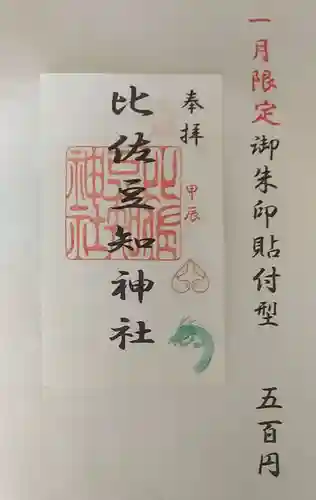 一月限定御朱印貼付型 五百円
奉拝
甲辰
比佐豆知神社